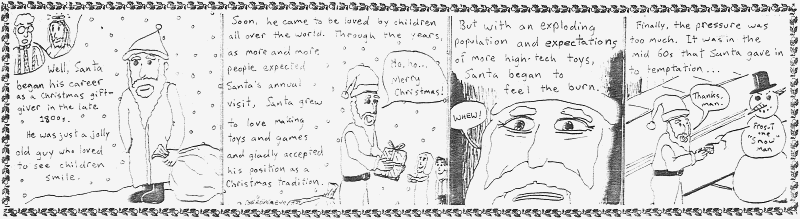 Well, Santa
began his career
as a Christmas gift-
giver in the late
1800s.
He was just a jolly
old guy who loved
to see children
smile.
Soon, he came to be loved by children
all over the world. Through the years,
as more and more
people expected
Santa's annual
visit, Santa grew
to love making
toys and games
and gladly accepted
his position as a
Christmas tradition.
Ho, ho...
Merry
Christmas!
But with an exploding
population and expectations
of more high-tech toys,
Santa began to
feel the burn.
WHEW!
Finally, the pressure was
too much. It was in the
mid 60s that Santa gave in
to temptation...
Thanks,
man.
Frosti
the
"Snow"
man